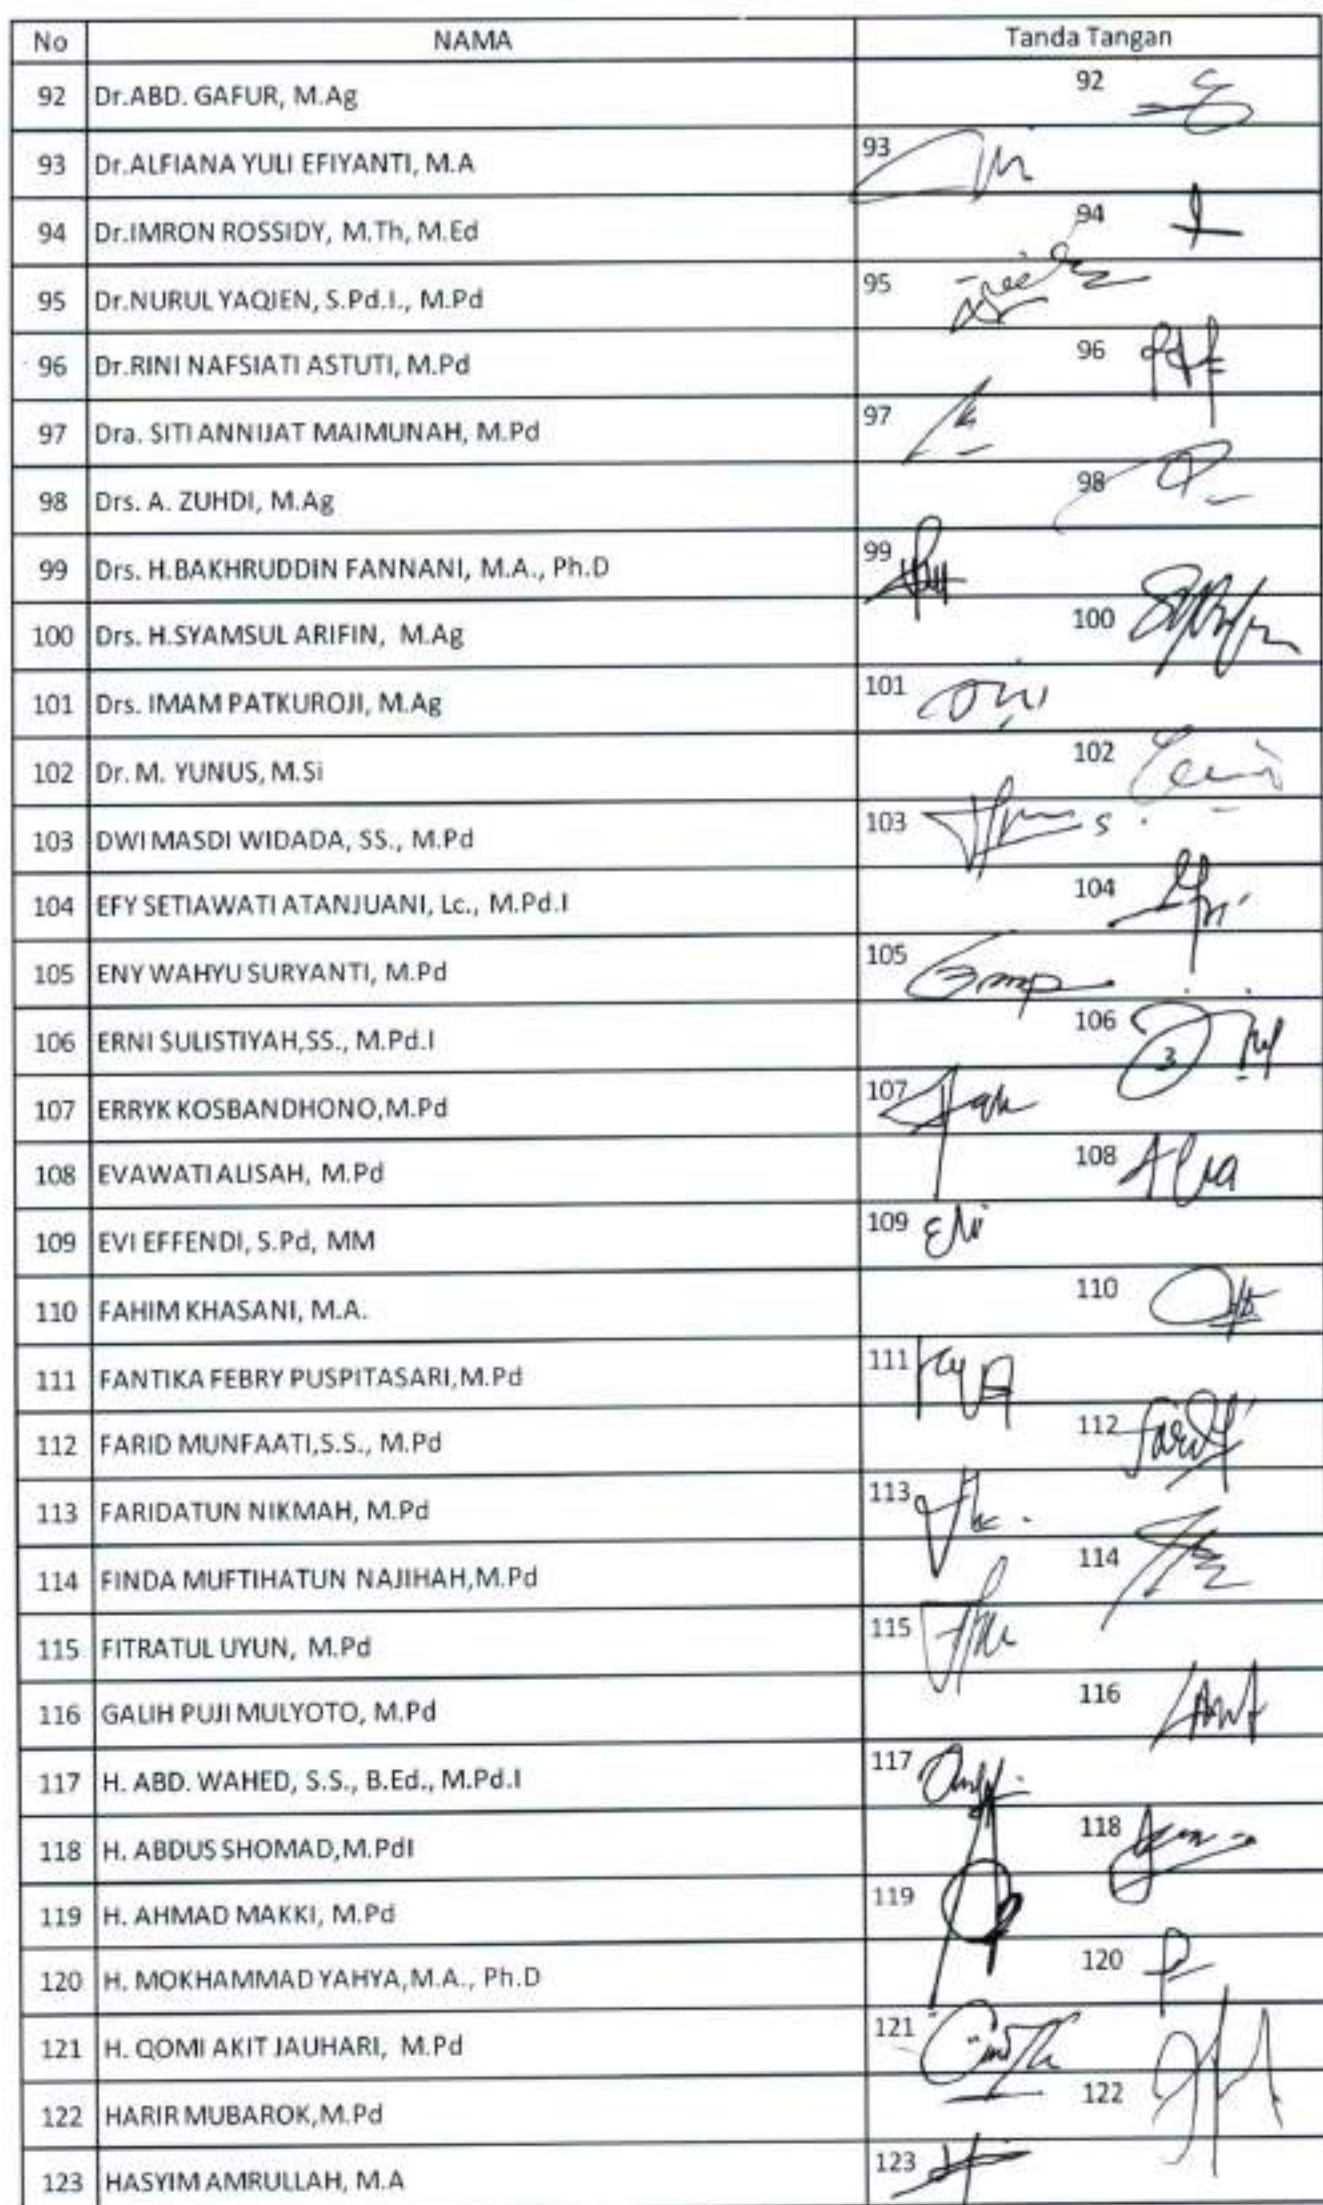 No NAMA Tanda Tangan
92 Dr.ABD. GAFUR, M.Ag 92
93 Dr.ALFIANA YULI EFIYANTI, M.A 93
94 Dr.IMRON ROSSIDY, M.Th, M.Ed 94
95 Dr.NURUL YAQIEN, S.Pd.I., M.Pd 95
96 Dr.RINI NAFSIATI ASTUTI, M.Pd 96
97 Dra. SITI ANNIJAT MAIMUNAH, M.Pd 97
98 Drs. A. ZUHDI, M.Ag 98
99 Drs. H.BAKHRUDDIN FANNANI, M.A., Ph.D 99
100 Drs. H.SYAMSUL ARIFIN, M.Ag 100
101 Drs. IMAM PATKUROJI, M.Ag 101
102 Dr. M. YUNUS, M.Si 102
103 DWI MASDI WIDADA, SS., M.Pd 103
104 EFY SETIAWATI ATANJUANI, Lc., M.Pd.I 104
105 ENY WAHYU SURYANTI, M.Pd 105
106 ERNI SULISTIYAH,SS., M.Pd.I 106
107 ERRYK KOSBANDHONO,M.Pd 107
108 EVAWATI ALISAH, M.Pd 108
109 EVI EFFENDI, S.Pd, MM 109
110 FAHIM KHASANI, M.A. 110
111 FANTIKA FEBRY PUSPITASARI,M.Pd 111
112 FARID MUNFAATI,S.S., M.Pd 112
113 FARIDATUN NIKMAH, M.Pd 113
114 FINDA MUFTIHATUN NAJIHAH,M.Pd 114
115 FITRATUL UYUN, M.Pd 115
116 GALIH PUJI MULYOTO, M.Pd 116
117 H. ABD. WAHED, S.S., B.Ed., M.Pd.I 117
118 H. ABDUS SHOMAD,M.PdI 118
119 H. AHMAD MAKKI, M.Pd 119
120 H. MOKHAMMAD YAHYA,M.A., Ph.D 120
121 H. QOMI AKIT JAUHARI, M.Pd 121
122 HARIR MUBAROK,M.Pd 122
123 HASYIM AMRULLAH, M.A 123